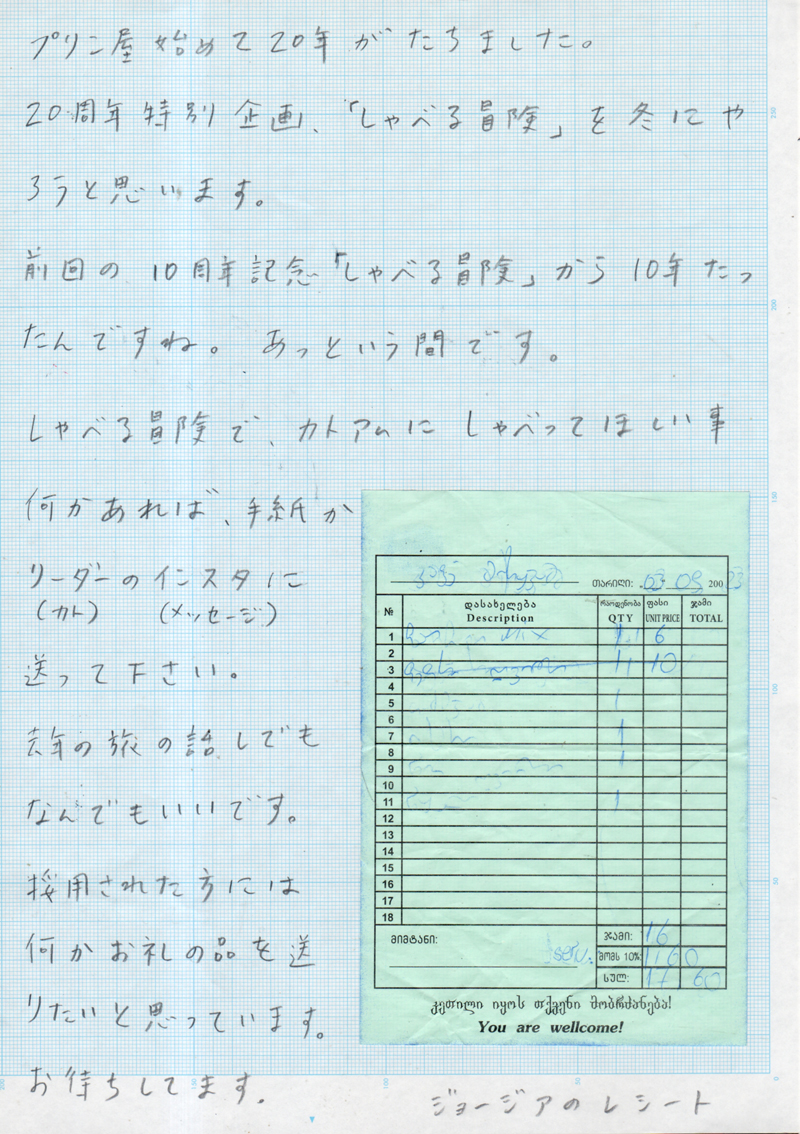 プリン屋始めて20年がたちました。
20周年特別企画、「しゃべる冒険」を冬にや
ろうと思います。
前回の10周年記念「しゃべる冒険」から10年たっ
たんですね。あっという間です。
しゃべる冒険で、カトアムにしゃべってほしい事
何かあれば、手紙か
リーダーのインスタに
(カト) (メッセージ)
送って下さい。
去年の旅の話しでも
なんでもいいです。
採用された方には
何かお礼の品を送
りたいと思っています。
お待ちしてます。
თარიღი: 03 09 200 23
№ დასახელება რაოდენობა ფასი ჯამი
Description QTY UNIT PRICE TOTAL
1 MIX 1 6
2
3 10
4
5 1
6
7 1
8
9 1
10
11 1
12
13
14
15
16
17
18
მიმტანი: ჯამი: 16
მომს 10%: 1,60
სულ: 17 60
კეთილი იყოს თქვენი მობრძანება!
You are wellcome!
ジョージアのレシート